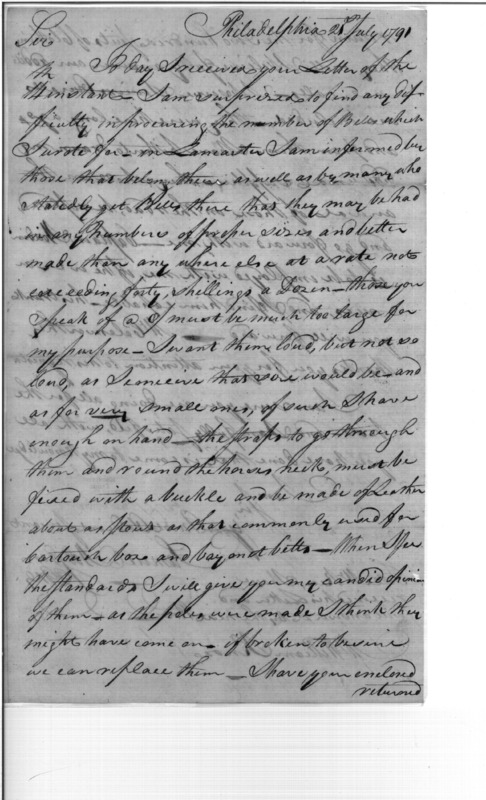 Philadelphia 21st July 1791
Sir
To day I received your Letter of the
instant — I am surprised to find any dif-
ficulty in procuring the number of Bells which
I wrote for — in Lancaster I am informed by
those that belong there, as well as by many who
statedly get Bells there that they may be had
in any Numbers of proper sizes and better
made than any where else at a rate not
exceeding forty shillings a Dozen — those you
speak of a must be much too large for
my purpose — I want them loud, but not so
loud, as I conceive that size would be — and
as for very small ones, of such I have
enough on hand — the straps to go through
them and round the horses neck, must be
fixed with a buckle and be made of Leather
about as stout as that commonly used for
Cartouch box and bayonet belts — When I see
the standards I will give you my candid opini-
of them — as the poles were made I think they
might have come on — if broken to be sure
we can replace them — I have your enclosed
returned